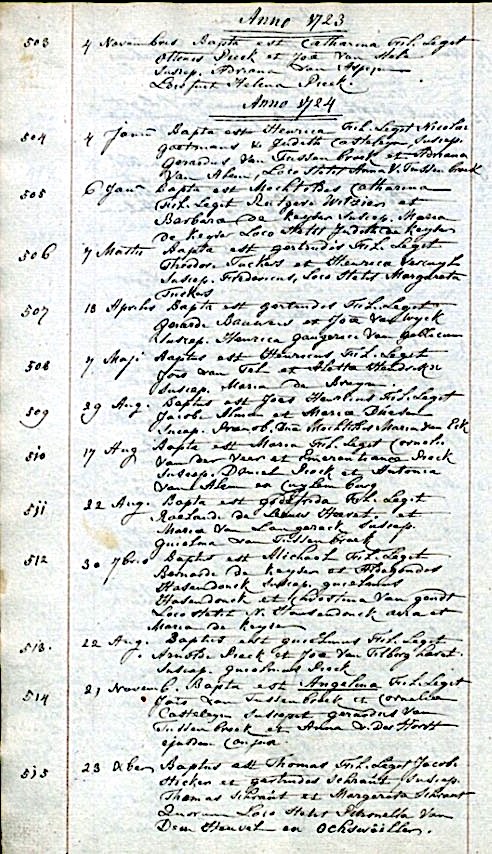 Anno 1723
503 4 Novembris Bapta est Catharina Fil. Leget
Ottonis Pieck et Joa Van
Suscep. Adriana Van
Loco fuit Helena Pieck.
Anno 1724
504 4 Janu Bapta est Henrica Fil. Leget Nicolai
et Judith Casteleyn, Suscep.
Gerardus Van Tussenbroek et Adriana
Van Alem, Loco Stetit Anna V. Tussenbroek
505 6 Janu Bapta est Mechtildes Catharina
Fil. Leget Rutgers et
Barbara de Keyser Suscep. Maria
de Keyser Loco Stetit Judith de Keyser
506 7 Martii Bapta est Gertrudis Fil. Leget
Theodor. Tuckers et Henrica
Suscep. Fredericus, Loco Stetit Margareta
Tuckers
507 18 Aprilis Bapta est Gertrudis Fil. Leget
Gerardi et Joa Van Wyck
Suscep. Henrica Van
508 7 Maji Baptus est Henricus Fil. Leget
Jois van Tol et Aletta
Suscep. Maria de
509 29 Aug. Baptus est Joes Fil. Leget
Jacobi et Maria
Suscep. Mechtildes Maria van Eck
510 17 Aug Bapta est Maria Fil. Leget Corneli.
Van der Veer et Emerantiana Pieck
Suscep. Daniel Pieck et Antonia
Van Alem
511 22 Aug. Bapta est Godefrida Fil. Leget
Roelandi de et
Maria Van Langerack Suscep.
Guielma Van Tussenbroek
512 30 7bris Baptus est Michael Fil. Leget
Bernardi de Keyser et Aldegondes
Hasendonck Suscep. Guielmus
Hasendonck et Christina Van Gendt
Loco Stetit N. Hasendonck et
Maria de Keyser
513. 22 Aug. Baptus est Guielmus Fil. Leget
Arnoldi Pieck et Joa Van
Suscep. Guielmus Pieck
514 21 Novemb. Bapta est Angelina Fil. Leget
Jois Van Tussenbroek et Cornelia
Casteleyn Suscepit Gerardus Van
Tussenbroek et Anna V. der Horst
ejusdem Conjux
515 23 Xber Baptus est Thomas Fil. Leget Jacob
et Gertrudes Schrant Suscep.
Thomas Schrant et Margareta Schrant
Quorum Loco Stetit Petronella Van
Den Heuvel en